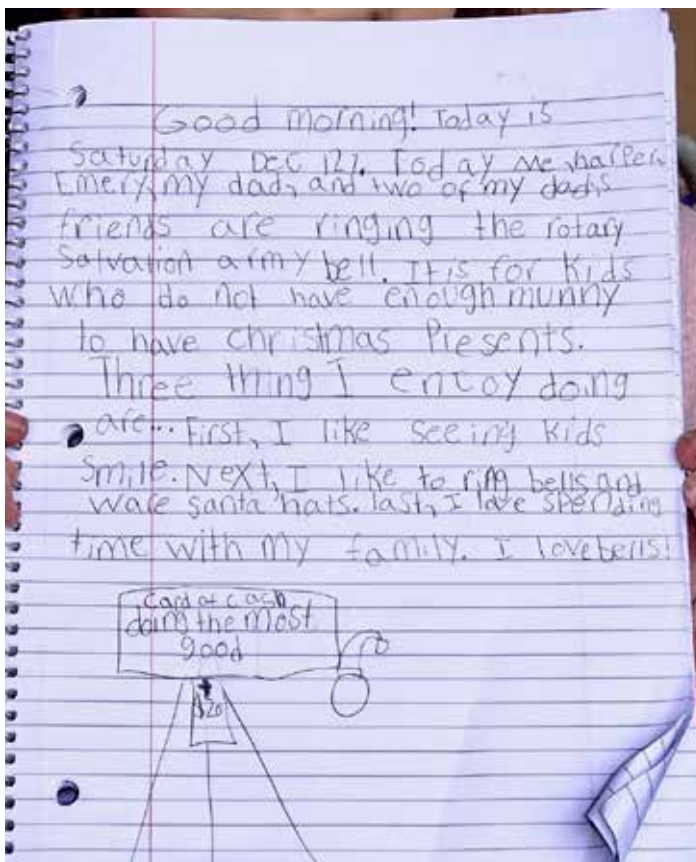 Good morning! Today is
Saturday Dec 127. Today me, harper,
Emery, my dad, and two of my dads
friends are ringing the rotary
Salvation army bell. It is for kids
who do not have enough munny
to have christmas Presents.
Three thing I encoy doing
are... First, I like seeing kids
smile. Next, I like to ring bells and
ware santa hats. last, I love spending
time with my family. I love bells!
card or cash
doing the most
good
$20